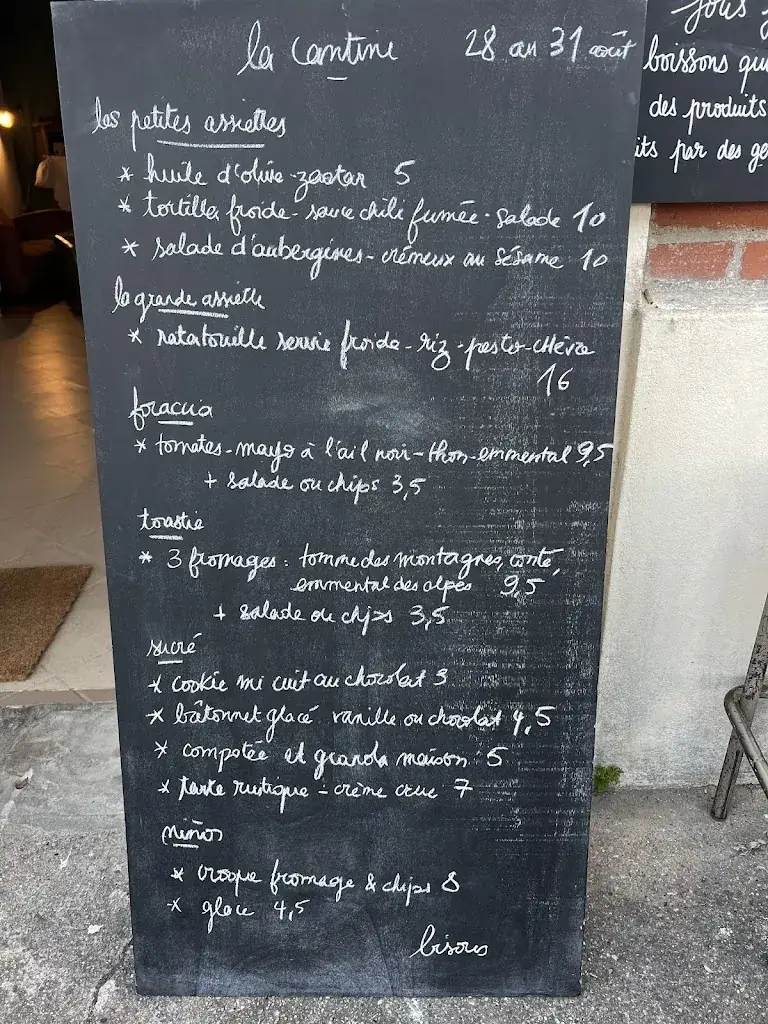 la cantine 28 au 31 août
les petites assiettes
* huile d'olive - zaatar 5
* tortilla froide - sauce chili fumée - salade 10
* salade d'aubergines - crémeux au sésame 10
la grande assiette
* ratatouille servie froide - riz - pesto - chèvre
16
focacia
* tomates - mayo à l'ail noir - thon - emmental 9,5
+ salade ou chips 3,5
toastie
* 3 fromages : tomme des montagnes, comté,
emmental des alpes 9,5
+ salade ou chips 3,5
sucré
* cookie mi cuit au chocolat 3
* bâtonnet glacé vanille ou chocolat 4,5
* compotée et granola maison 5
* tarte rustique - crème crue 7
niños
* croque fromage & chips 8
* glace 4,5
bisous
boissons qu
des produits
its par des ge